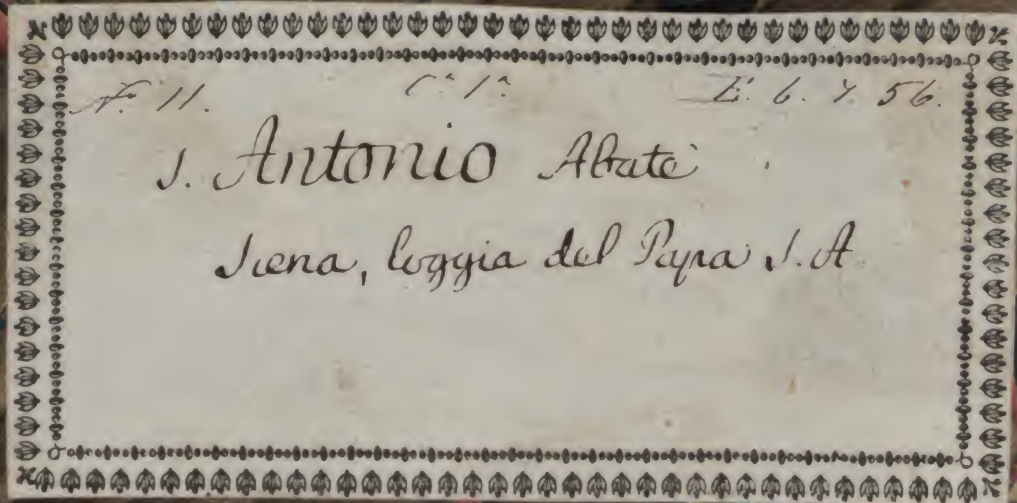 N.º 11. C.ª 1.ª E. 6. 7. 56.
S. Antonio Abate
Siena, loggia del Papa S. A